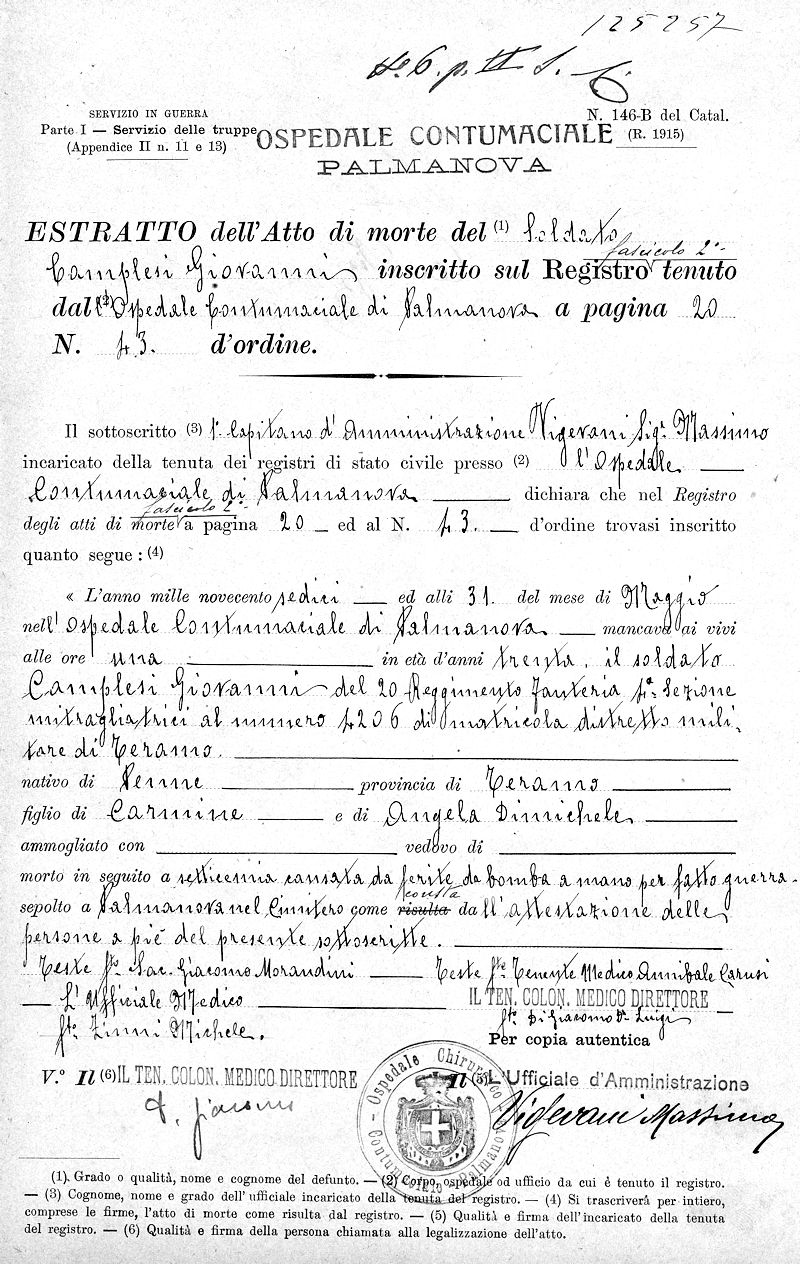 125257
SERVIZIO IN GUERRA
Parte I — Servizio delle truppe
(Appendice II n. 11 e 13)
N. 146-B del Catal.
(R. 1915)
OSPEDALE CONTUMACIALE
PALMANOVA
ESTRATTO dell'Atto di morte del (1) Soldato
fascicolo 2°
Camplesi Giovanni inscritto sul Registro tenuto
dall'(2) Ospedale Contumaciale di Palmanova a pagina 20
N. 43. d'ordine.
Il sottoscritto (3) 1° Capitano d'Amministrazione Vigevani Sigr Massimo
incaricato della tenuta dei registri di stato civile presso (2) l'Ospedale
Contumaciale di Palmanova dichiara che nel Registro
fascicolo 2°
degli atti di morte a pagina 20 ed al N. 43. d'ordine trovasi inscritto
quanto segue: (4)
« L'anno mille novecento sedici ed alli 31. del mese di Maggio
nell'Ospedale Contumaciale di Palmanova mancava ai vivi
alle ore una in età d'anni trenta, il soldato
Camplesi Giovanni del 20 Reggimento Fanteria 1a Sezione
mitragliatrici al numero 4206 di matricola distretto mili-
tare di Teramo.
nativo di Penne provincia di Teramo
figlio di Carmine e di Angela Dimichele
ammogliato con vedovo di
morto in seguito a setticemia causata da ferite da bomba a mano per fatto guerra.
consta
sepolto a Palmanova nel Cimitero come risulta dall'attestazione delle
persone a piè del presente sottoscritte.
Teste fto Sac. Giacomo Morandini Teste fto Tenente Medico Annibale Carusi
L'Ufficiale Medico IL TEN. COLON. MEDICO DIRETTORE
fto Zinni Michele. fto Di Giacomo Dr Luigi
Per copia autentica
V.° Il (6) IL TEN. COLON. MEDICO DIRETTORE Il (5) L'Ufficiale d'Amministrazione
Vigevani Massimo
Ospedale Chirurgico Contumaciale Palmanova
(1) Grado o qualità, nome e cognome del defunto. — (2) Corpo, ospedale od ufficio da cui è tenuto il registro.
— (3) Cognome, nome e grado dell'ufficiale incaricato della tenuta del registro. — (4) Si trascriverà per intiero,
comprese le firme, l'atto di morte come risulta dal registro. — (5) Qualità e firma dell'incaricato della tenuta
del registro. — (6) Qualità e firma della persona chiamata alla legalizzazione dell'atto.